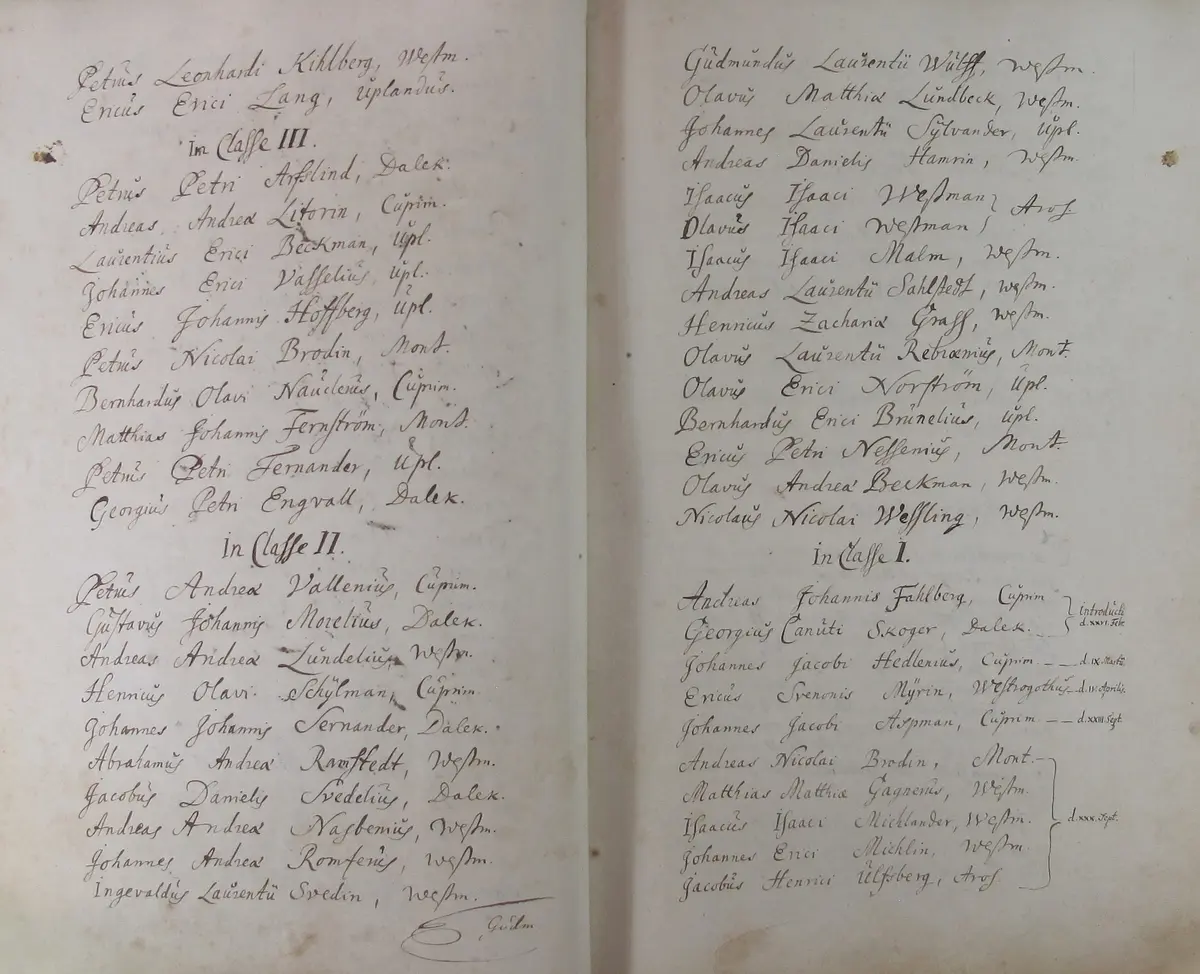 Petrus Leonhardi Kihlberg, Westm.
Ericus Erici Lang, Uplandus.
In Classe III.
Petrus Petri Arfslind, Dalek.
Andreas Andreæ Litorin, Cuprim.
Laurentius Erici Beckman, Upl.
Johannes Erici Vasselius, Upl.
Ericus Johannis Hoffberg, Upl.
Petrus Nicolai Brodin, Mont.
Bernhardus Olavi Nauclerus, Cuprim.
Matthias Johannis Fernström, Mont.
Petrus Petri Fernander, Upl.
Georgius Petri Engvall, Dalek.
In Classe II.
Petrus Andreæ Vallenius, Cuprim.
Gustavus Johannis Morelius, Dalek.
Andreas Andreæ Lundelius, Westm.
Henricus Olavi Schylman, Cuprim.
Johannes Johannis Sernander, Dalek.
Abrahamus Andreæ Ramstedt, Westm.
Jacobus Danielis Svedelius, Dalek.
Andreas Andreæ Nasbenius, Westm.
Johannes Andreæ Romferus, Westm.
Ingevaldus Laurentii Svedin, Westm.
Gudm
Gudmundus Laurentii Wulff, Westm.
Olavus Matthiæ Lundbeck, Westm.
Johannes Laurentii Sylvander, Upl.
Andreas Danielis Hamrin, Westm.
Isaacus Isaaci Westman
Olavus Isaaci Westman } Aros
Isaacus Isaaci Malm, Westm.
Andreas Laurentii Sahlstedt, Westm.
Henricus Zachariæ Grass, Westm.
Olavus Laurentii Rebrænius, Mont.
Olavus Erici Norström, Upl.
Bernhardus Erici Brunelius, Upl.
Ericus Petri Nessenius, Mont.
Olavus Andreæ Beckman, Westm.
Nicolaus Nicolai Wessling, Westm.
In Classe I.
Andreas Johannis Fahlberg, Cuprim
Georgius Canuti Skoger, Dalek. } introducti d. XXVI. Febr
Johannes Jacobi Hedlenius, Cuprim. — — d. IX. Martii
Ericus Svenonis Myrin, Westrogothus — d. IV. Aprilis.
Johannes Jacobi Aspman, Cuprim — — d. XXIII. Sept.
Andreas Nicolai Brodin, Mont.
Matthias Matthiæ Gagnerus, Westm.
Isaacus Isaaci Michlander, Westm. } d. XXX. Sept.
Johannes Erici Michlin, Westm
Jacobus Henrici Ulfsberg, Aros